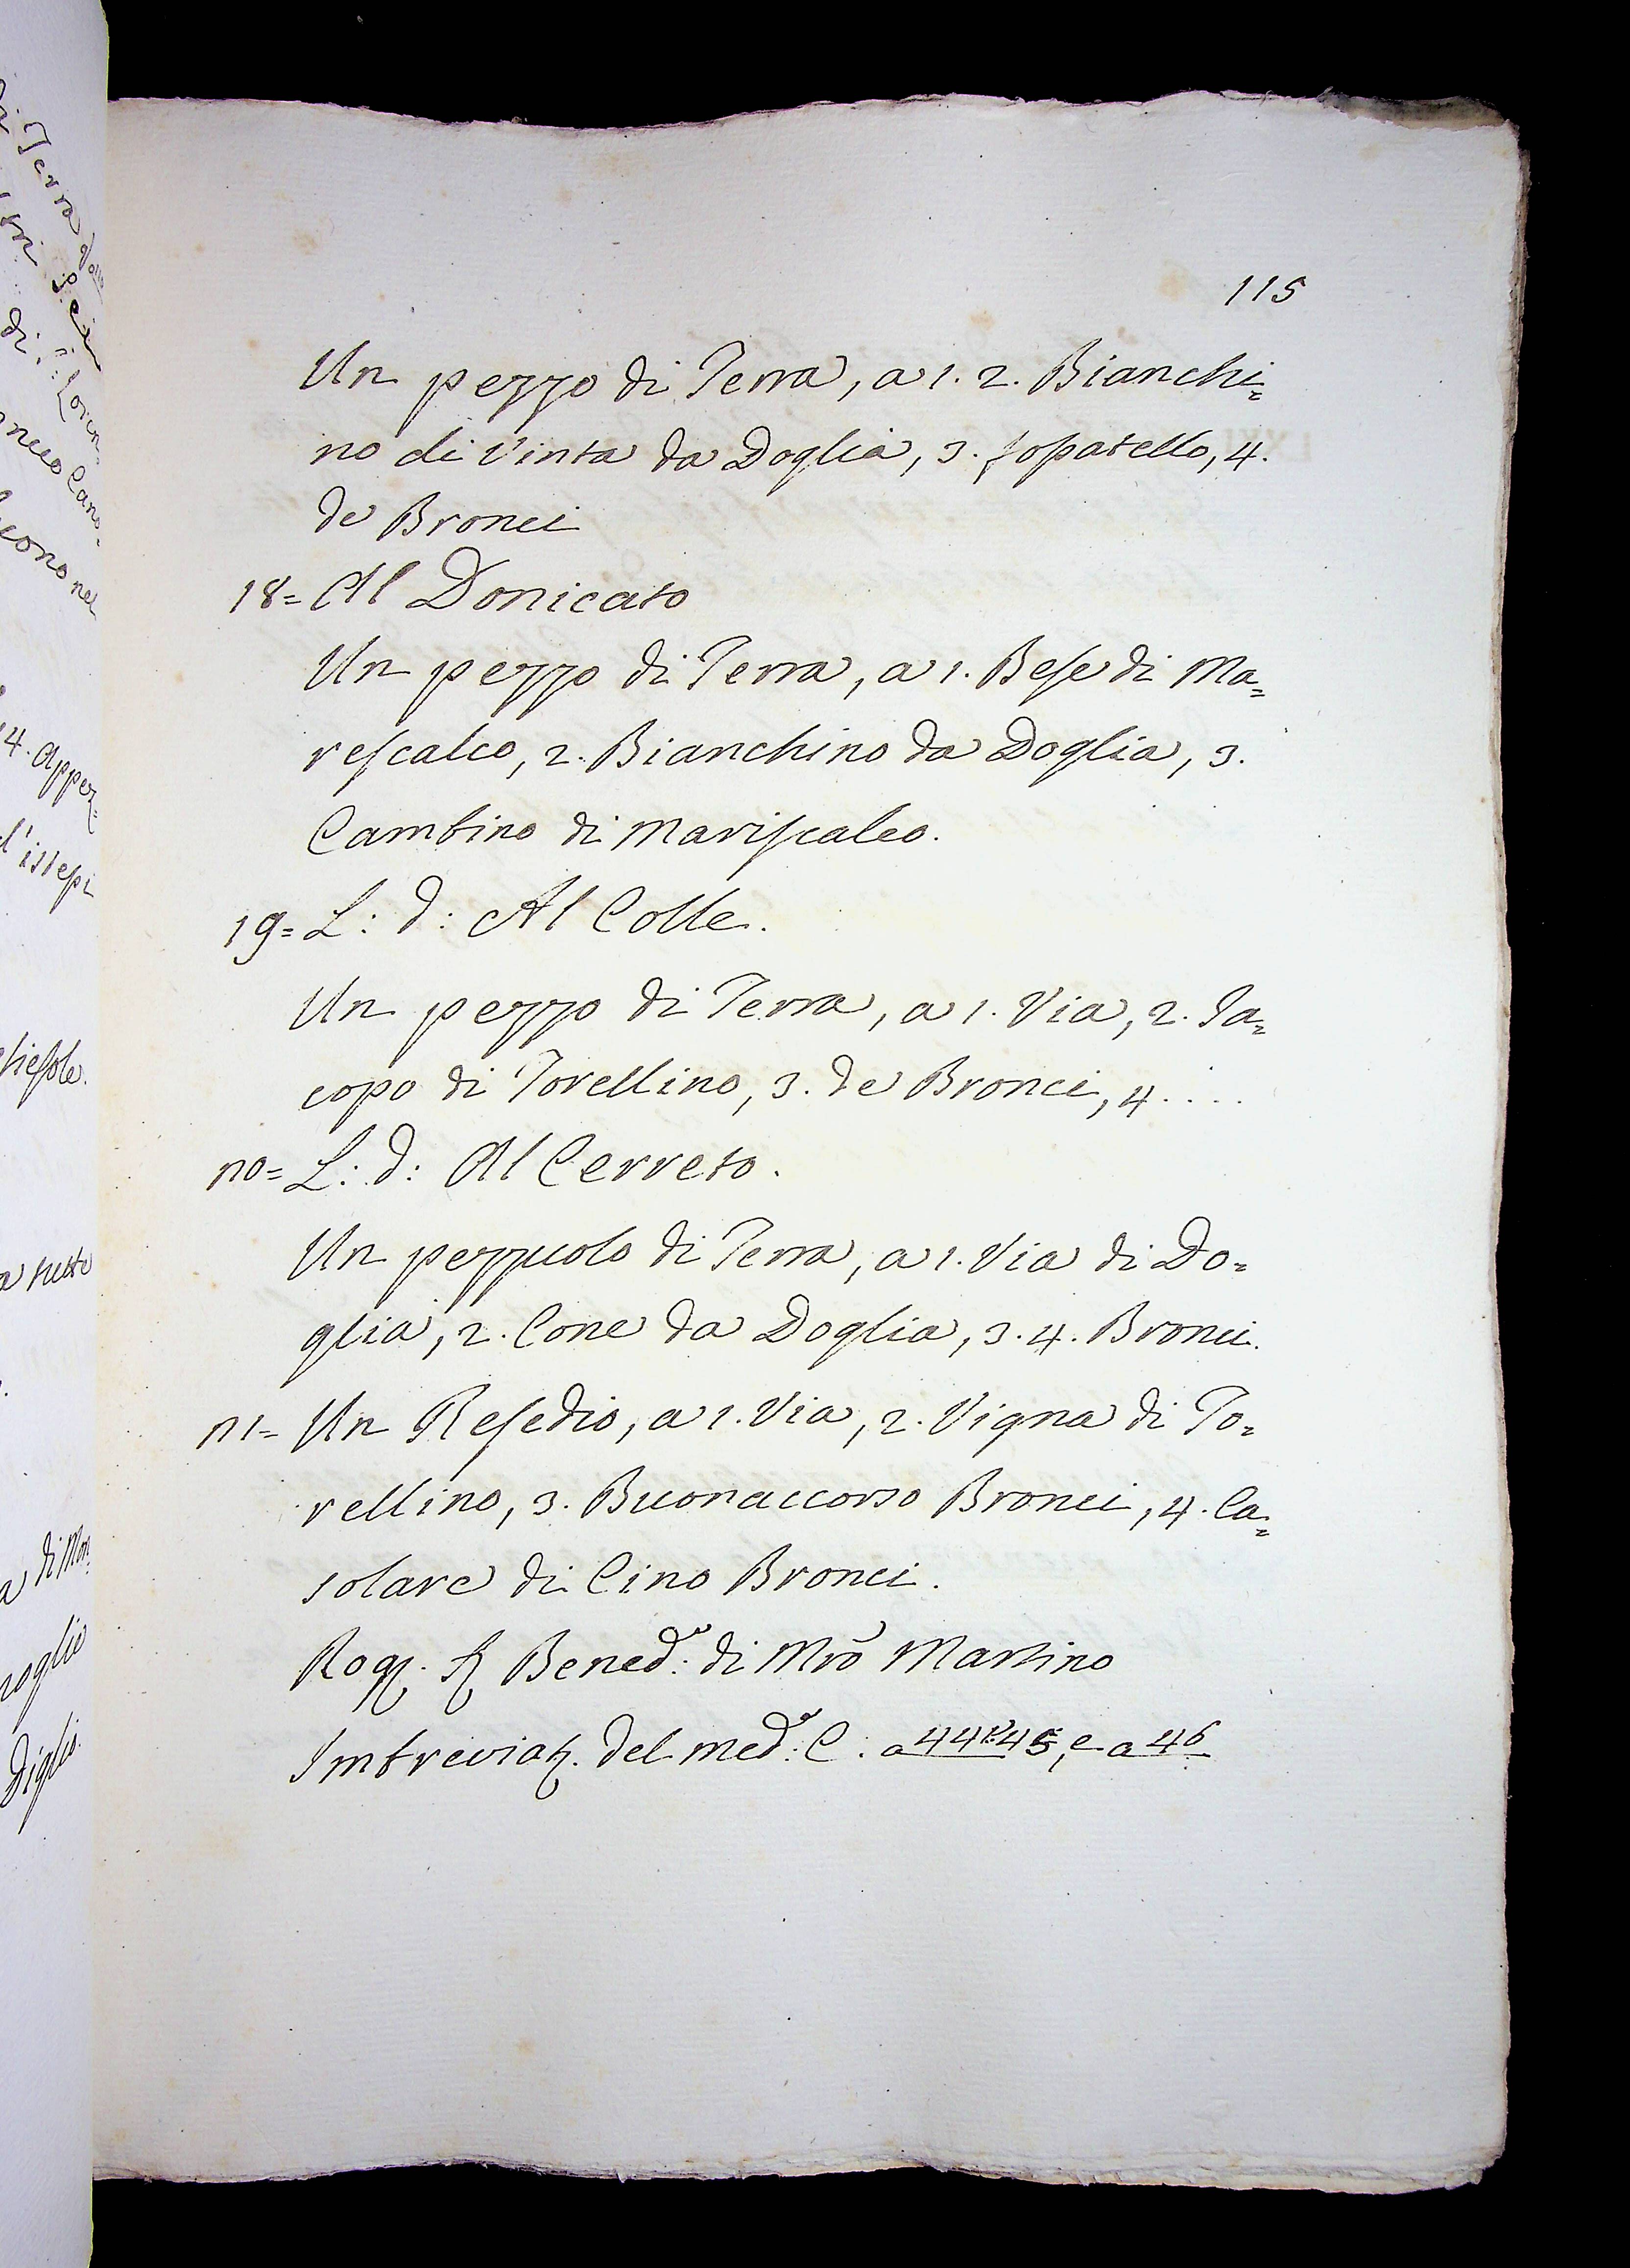 115
Un pezzo di Terra, a 1. 2. Bianchi=
no di Vinta da Doglia, 3. fossatello, 4.
de Bronci
18= Al Donicato
Un pezzo di Terra, a 1. Bese di Ma=
rescalco, 2. Bianchino da Doglia, 3.
Cambino di Mariscalco.
19= L: d: Al Colle.
Un pezzo di Terra, a 1. Via, 2. Ja=
copo di Torellino, 3. de Bronci, 4....
20= L: d: Al Cerreto.
Un pezzuolo di Terra, a 1. Via di Do=
glia, 2. Cone da Doglia, 3. 4. Bronci.
21= Un Resedio, a 1. Via, 2. Vigna di To=
rellino, 3. Buonaccorso Bronci, 4. Ca=
solare di Cino Bronci.
Rog. Benedo: di Mro Martino
Imbreviaz. del medo: C. a 44 t. 45, e a 46